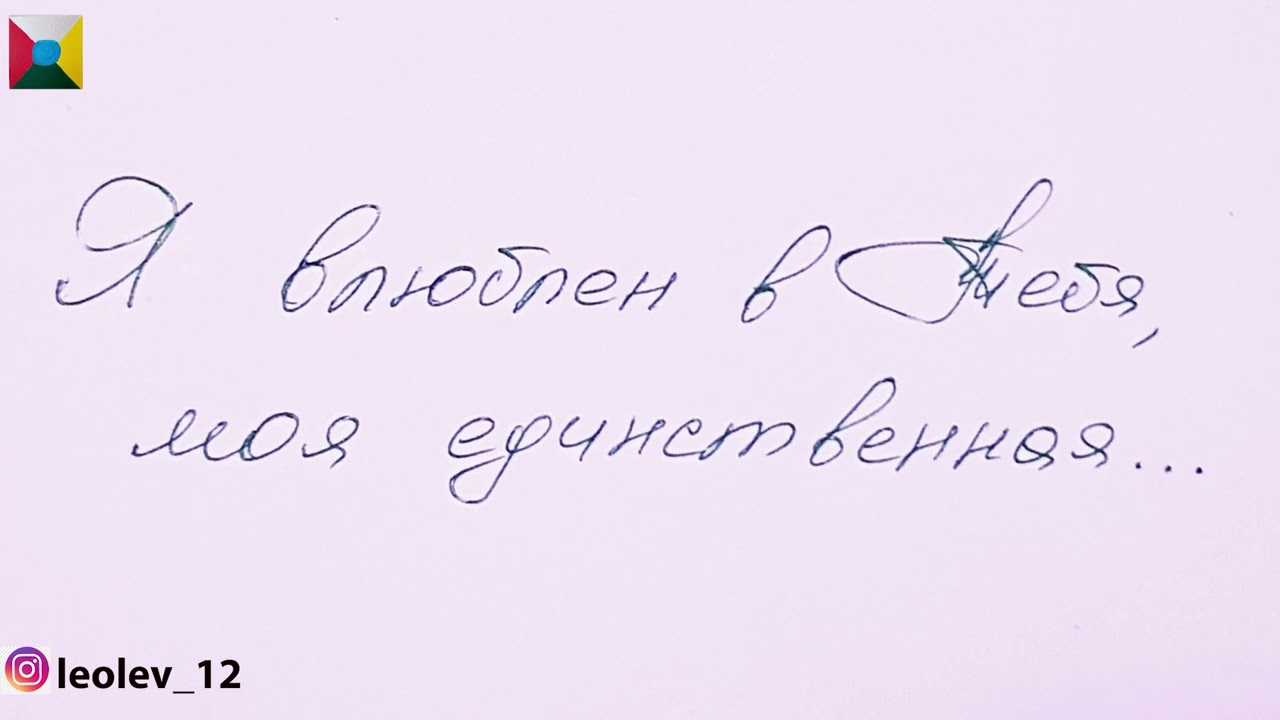 Я влюблен в Тебя,
моя единственная...
leolev_12